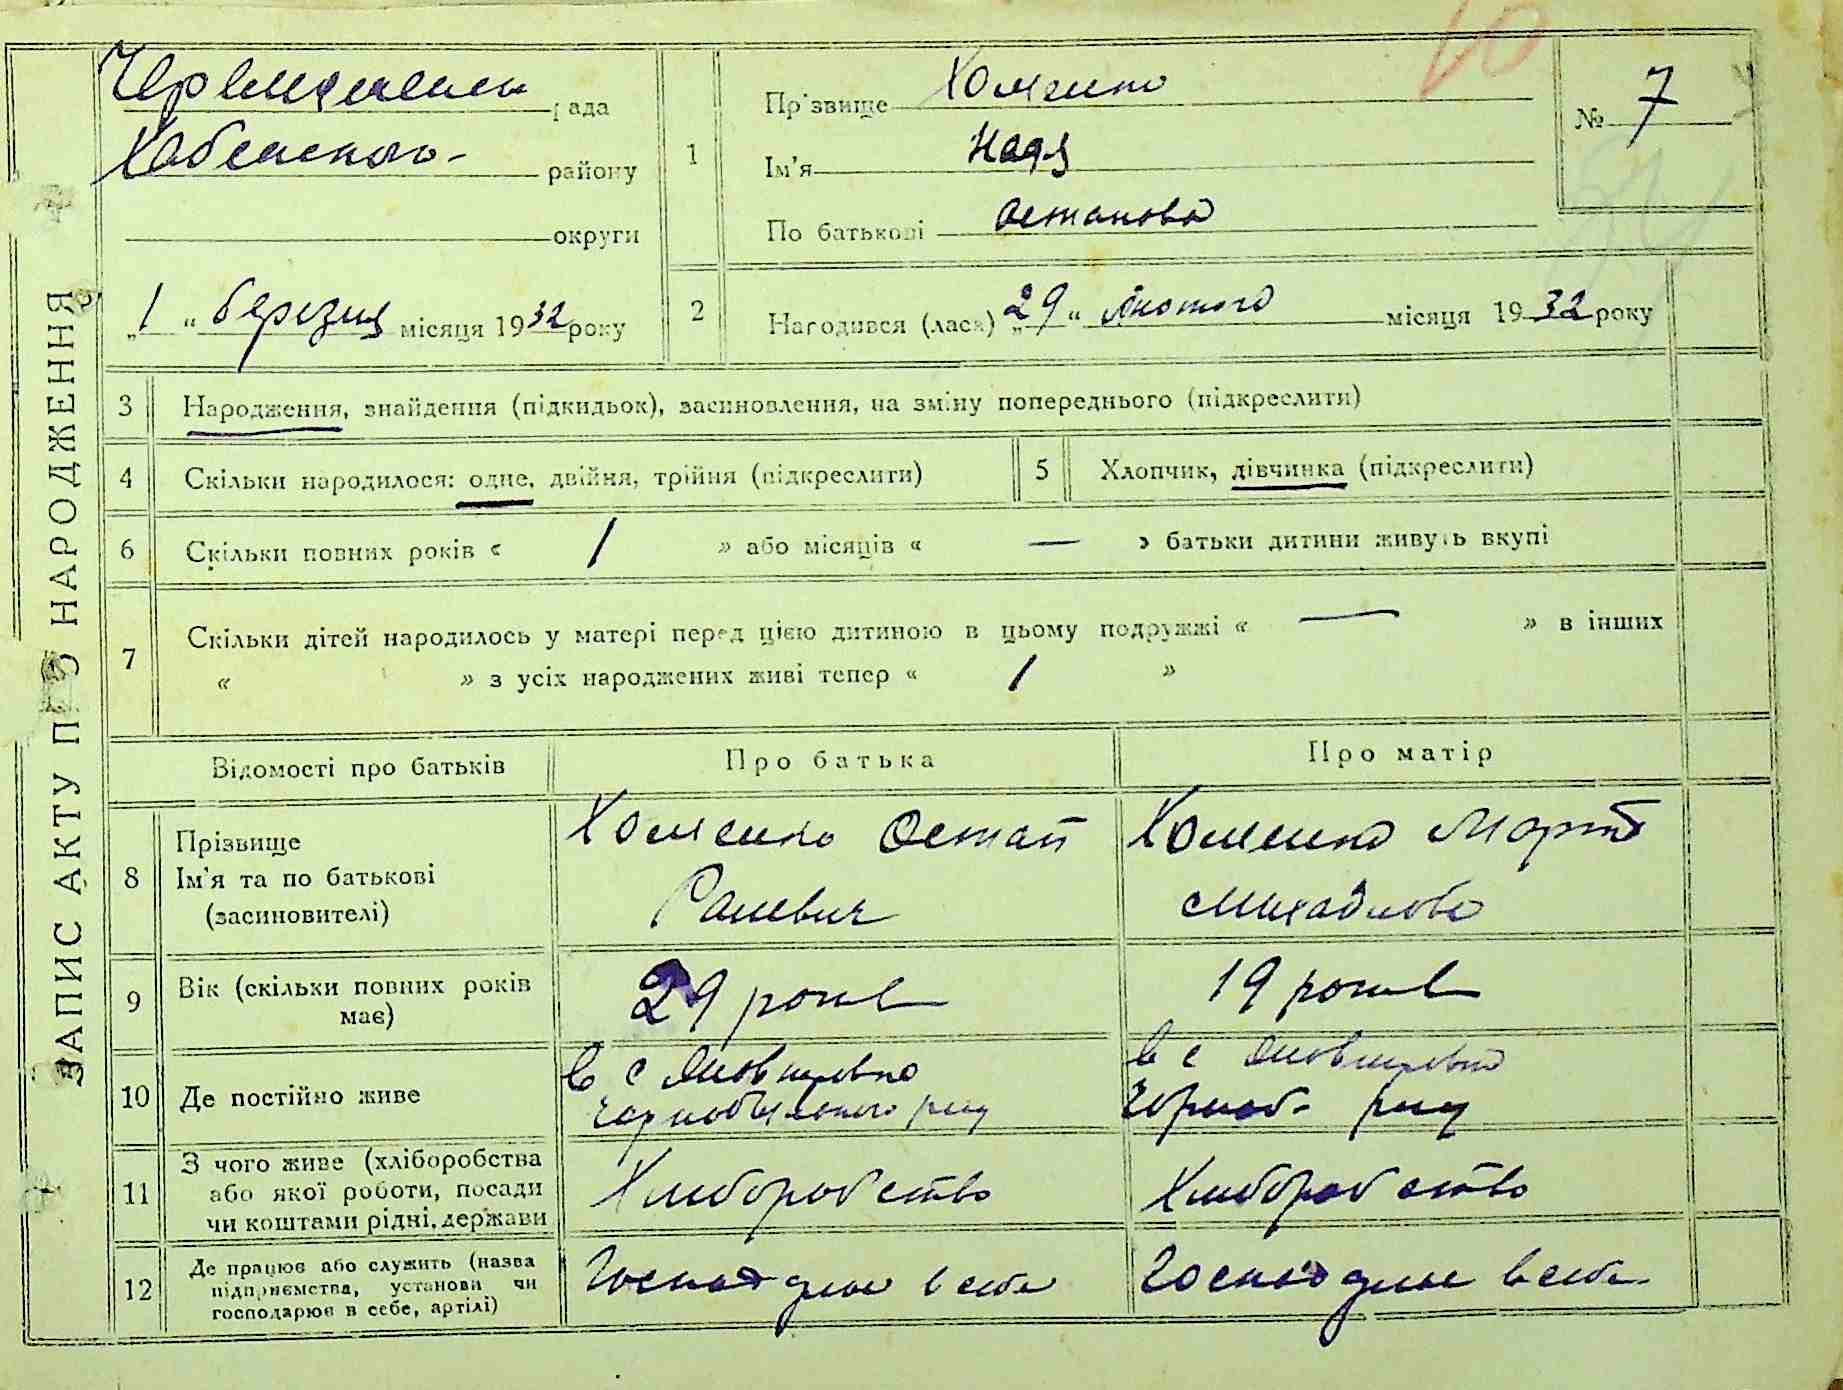 ЗАПИС АКТУ ПРО НАРОДЖЕННЯ
рада
Хабенского- району
округи
„1“ березня місяця 1932 року
1
Прізвище Хоменко
Ім'я Надя
По батькові Остапова
№ 7
2
Народився (лася) „29“ лютого місяця 1932 року
3 Народження, знайдення (підкидьок), засиновлення, на зміну попереднього (підкреслити)
4 Скільки народилося: одне, двійня, трійня (підкреслити) 5 Хлопчик, дівчинка (підкреслити)
6 Скільки повних років « 1 » або місяців « — » батьки дитини живуть вкупі
7 Скільки дітей народилось у матері перед цією дитиною в цьому подружжі « — » в інших
« » з усіх народжених живі тепер « 1 »
Відомості про батьків Про батька Про матір
8 Прізвище
Ім'я та по батькові
(засиновителі)
Хоменко Остап
Хоменко
9 Вік (скільки повних років
має)
29 років
19 років
10 Де постійно живе
в с
Чорнобильского р-ну
в с
Чорноб- р-ну
11 З чого живе (хліборобства
або якої роботи, посади
чи коштами рідні, держави
Хлиборобство
Хлиборобство
12 Де працює або служить (назва
підприємства, установи чи
господарює в себе, артілі)
в себе
в себе